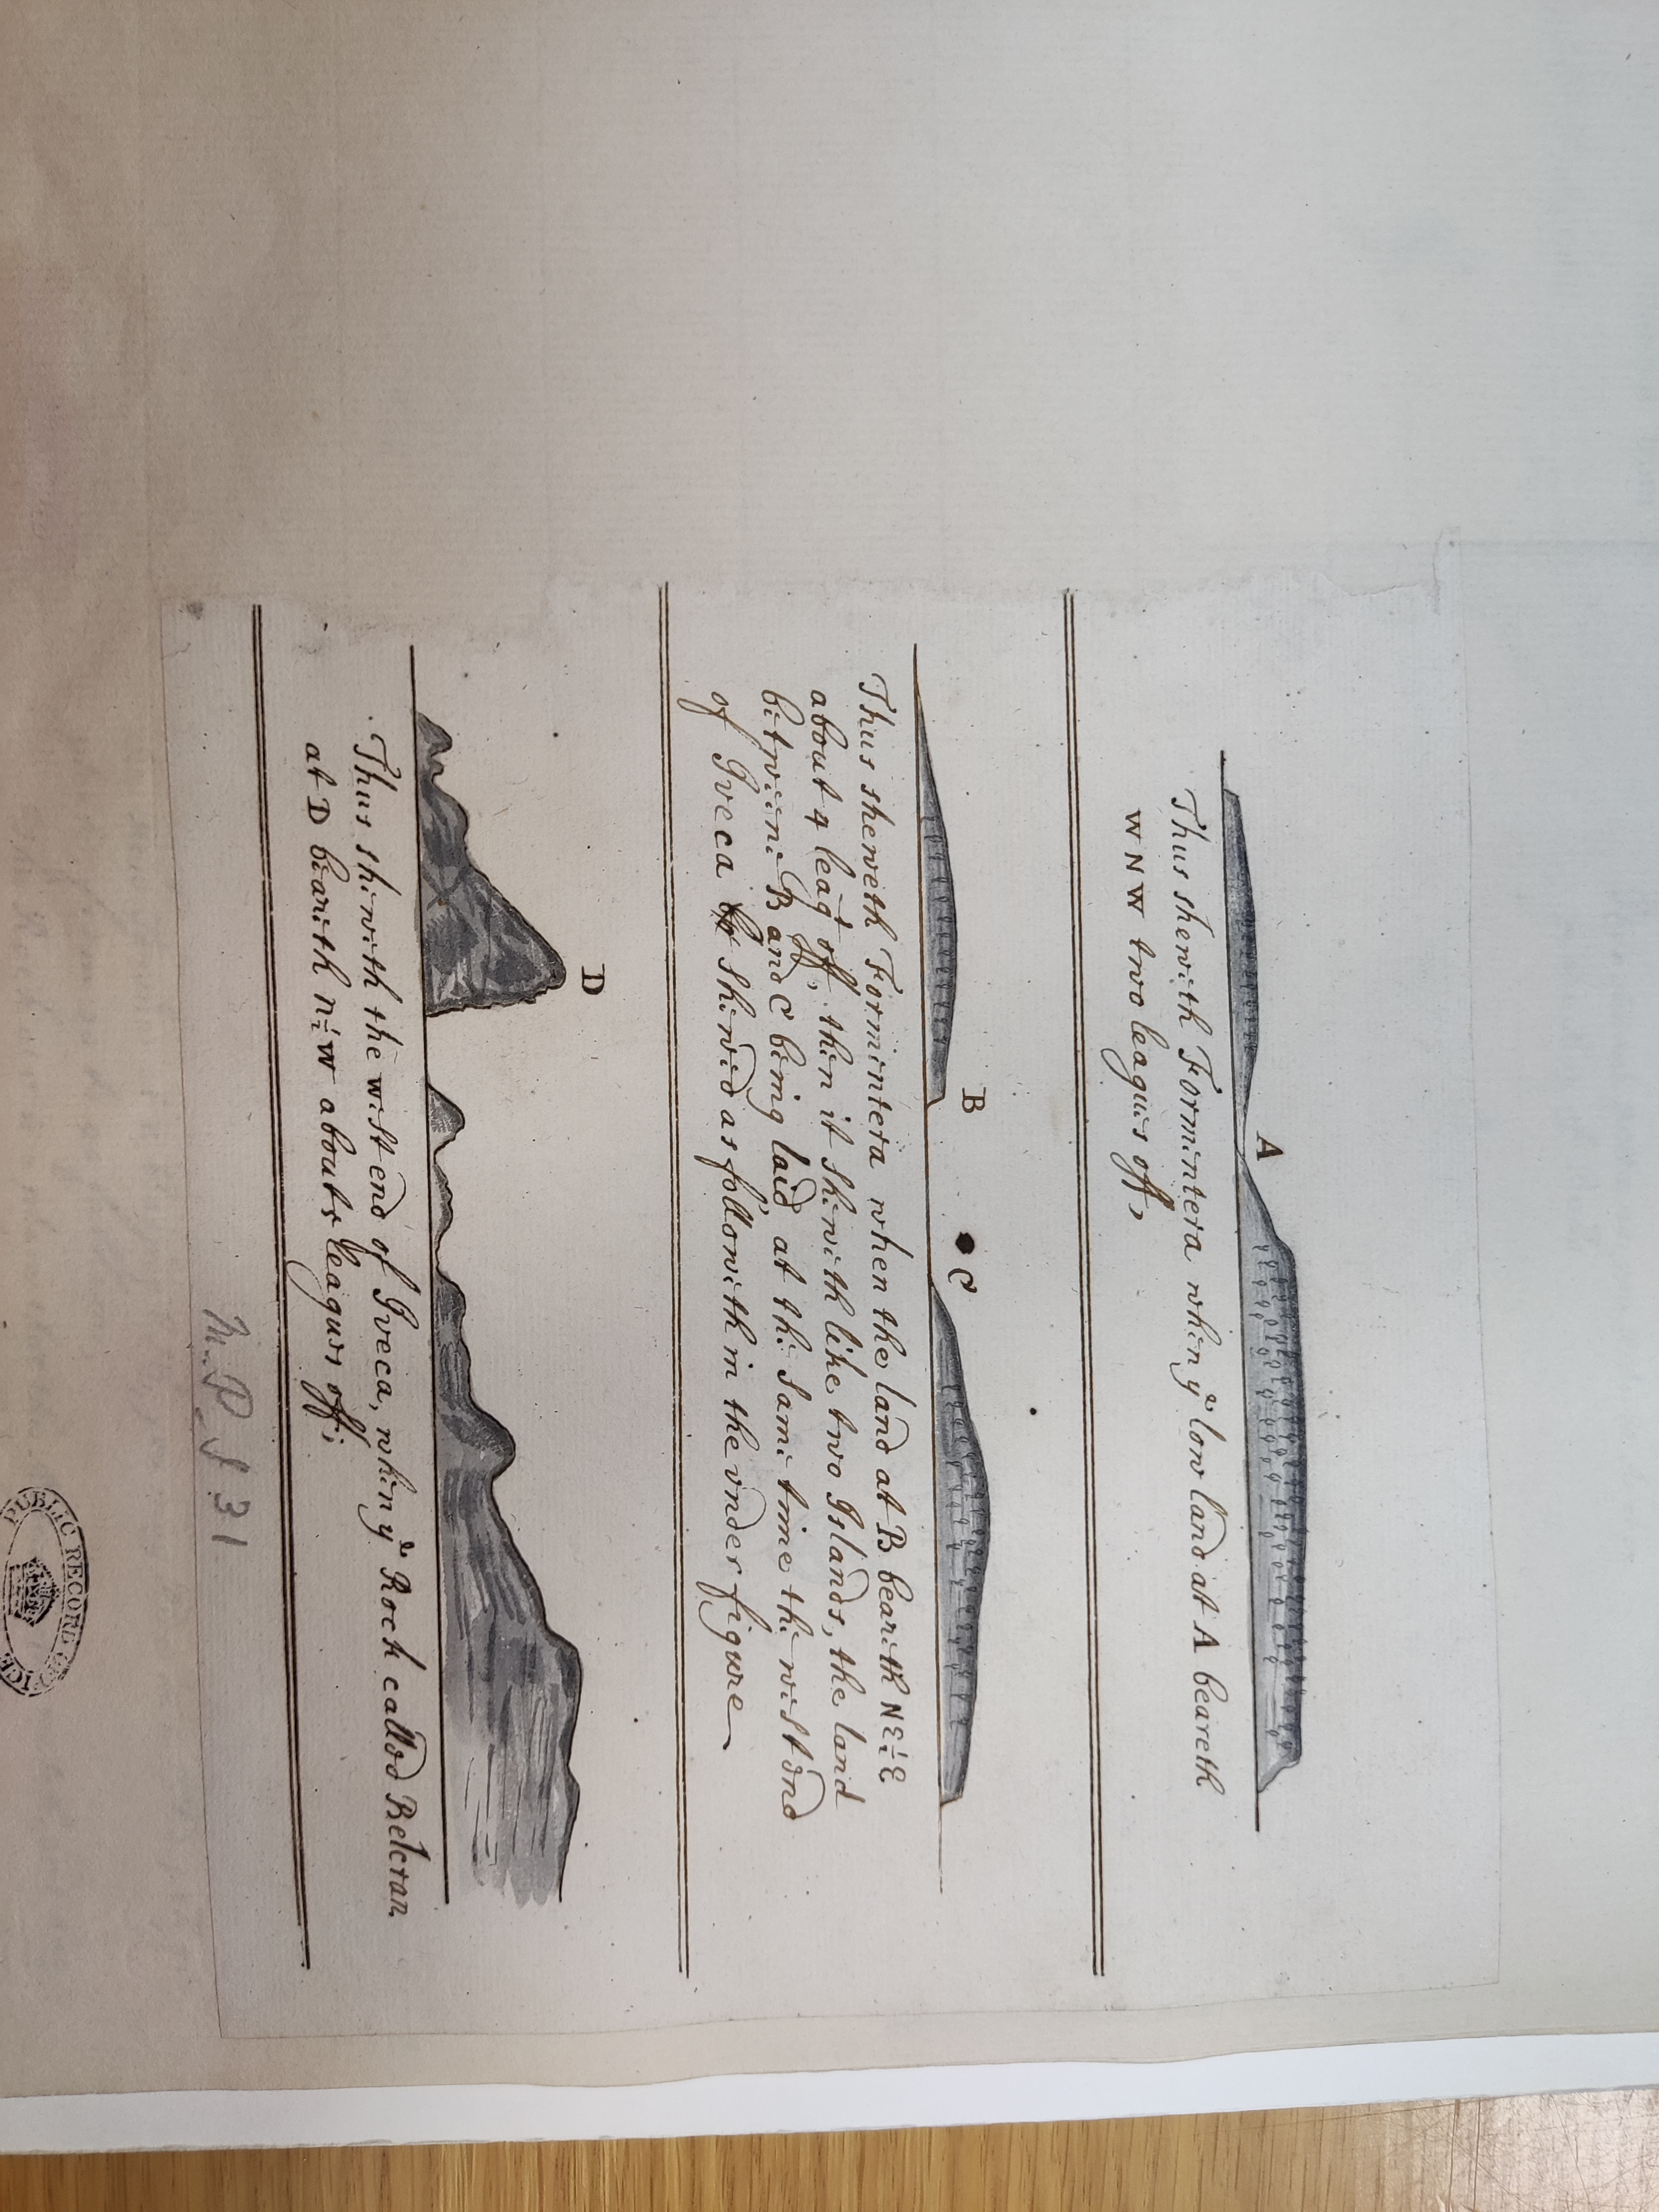 A
Thus sheweth Formintera when yᵉ low land at A beareth
W N W two leagues off,
B
C
Thus sheweth Formintera when the land at B beareth NE½E
about 4 leagˢ off, then it sheweth like two Islands, the land
betweene B and C being laid at the same time the west end
of Iveca shewed as followeth in the under figure
D
Thus sheweth the west end of Iveca, when yᵉ Rock called Beteran
at D beareth about leagues off;
M.P.I 31
PUBLIC RECORD OFFICE